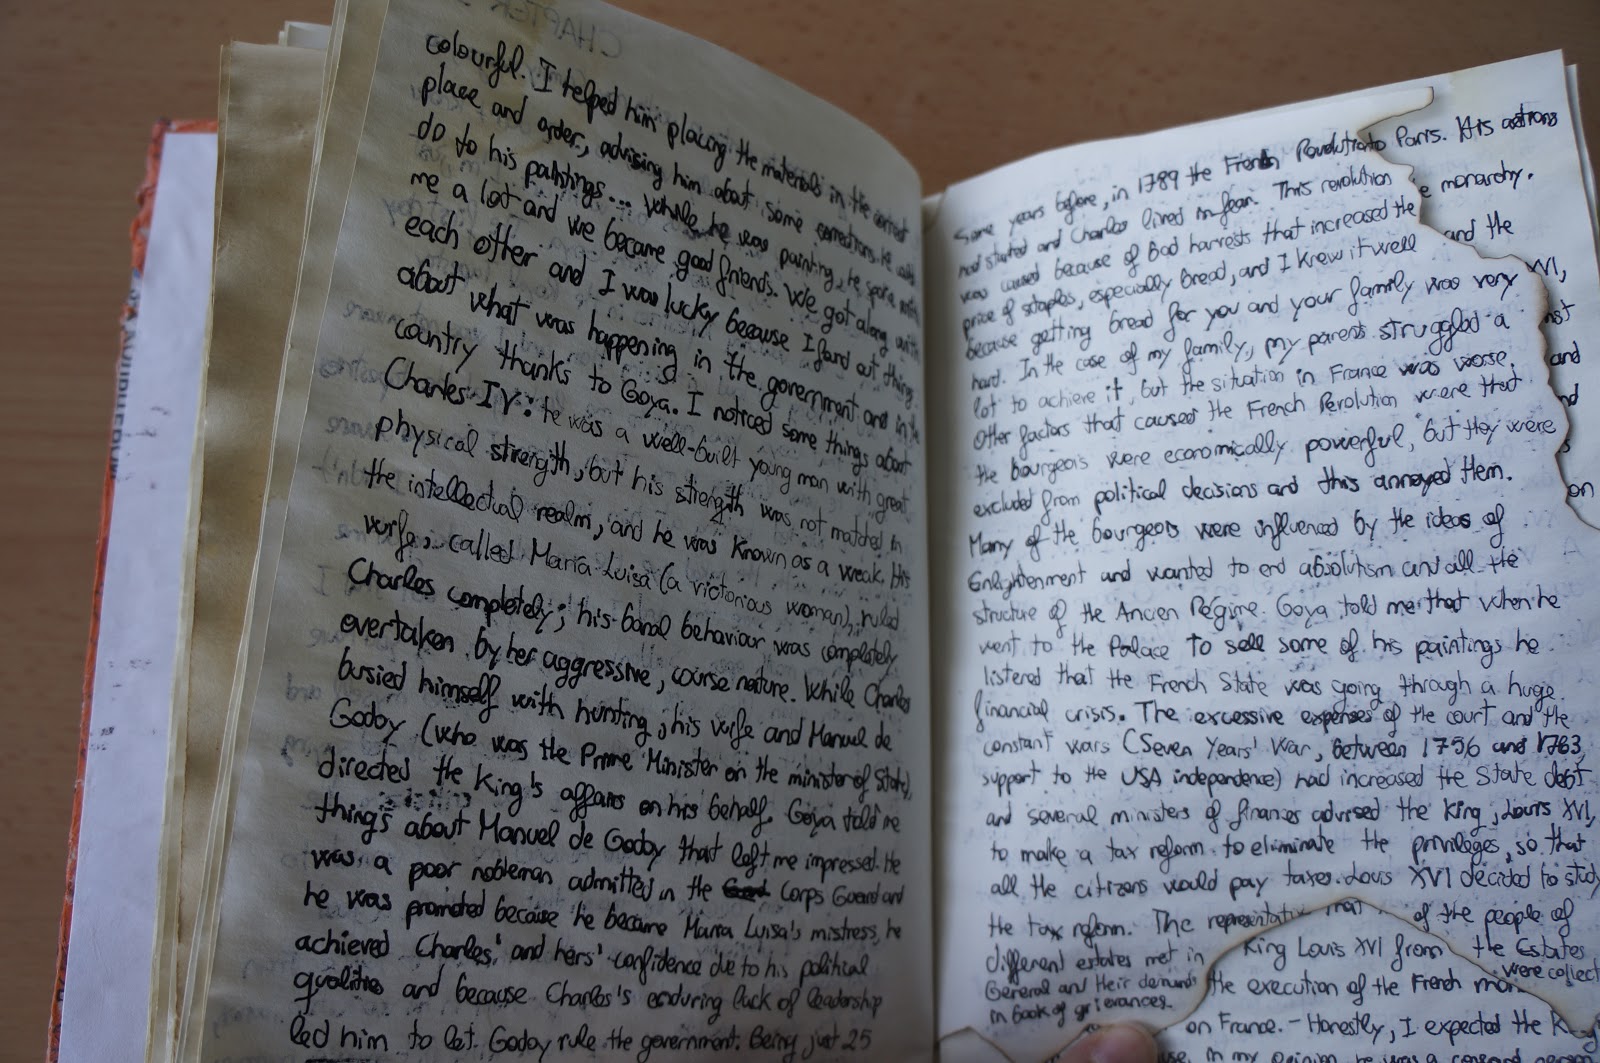 CHAPTER
colourful. I helped him placing the materials in the correct
place and order, advising him about some corrections he could
do to his paintings... While he was painting, he spoke with
me a lot and we became good friends. We got along with
each other and I was lucky because I found out things
about what was happening in the government and in the
country thanks to Goya. I noticed some things about
Charles IV: he was a well-built young man with great
physical strength, but his strength was not matched in
the intellectual realm, and he was known as a weak. His
wife, called María Luisa (a victorious woman), ruled
Charles completely; his banal behaviour was completely
overtaken by her aggressive, course nature. While Charles
busied himself with hunting, his wife and Manuel de
Godoy (who was the Prime Minister on the minister of State),
directed the King's affairs on his behalf. Goya told me
things about Manuel de Godoy that left me impressed. He
was a poor nobleman admitted in the Corps Guard and
he was promoted because he became María Luisa's mistress, he
achieved Charles' and hers' confidence due to his political
qualities and because Charles's enduring lack of leadership
led him to let Godoy rule the government. Being just 25
Some years before, in 1789 the French Revolution to Paris. His actions
had started and Charles lived in fear. This revolution e monarchy.
was caused because of bad harvests that increased the
price of staples, especially bread, and I knew it well and the
because getting bread for you and your family was very XVI,
hard. In the case of my family, my parents struggled a nst
lot to achieve it, but the situation in France was worse. and
Other factors that caused the French Revolution were that nd
the bourgeois were economically powerful, but they were s
excluded from political decisions and this annoyed them. on
Many of the bourgeois were influenced by the ideas of
Enlightenment and wanted to end absolutism and all the
structure of the Ancien Régime. Goya told me that when he
went to the Palace to sell some of his paintings he
listened that the French State was going through a huge
financial crisis. The excessive expenses of the court and the
constant wars (Seven Years' War, between 1756 and 1763,
support to the USA independence) had increased the State debt
and several ministers of finances advised the King, Louis XVI,
to make a tax reform to eliminate the privileges, so that
all the citizens would pay taxes. Louis XVI decided to study
the tax reform. The representative of the people of
different estates met in King Louis XVI from the Estates
General and their demands the execution of the French mon were collect
in book of grievances.
on France. - Honestly, I expected the King
in my opinion he was a